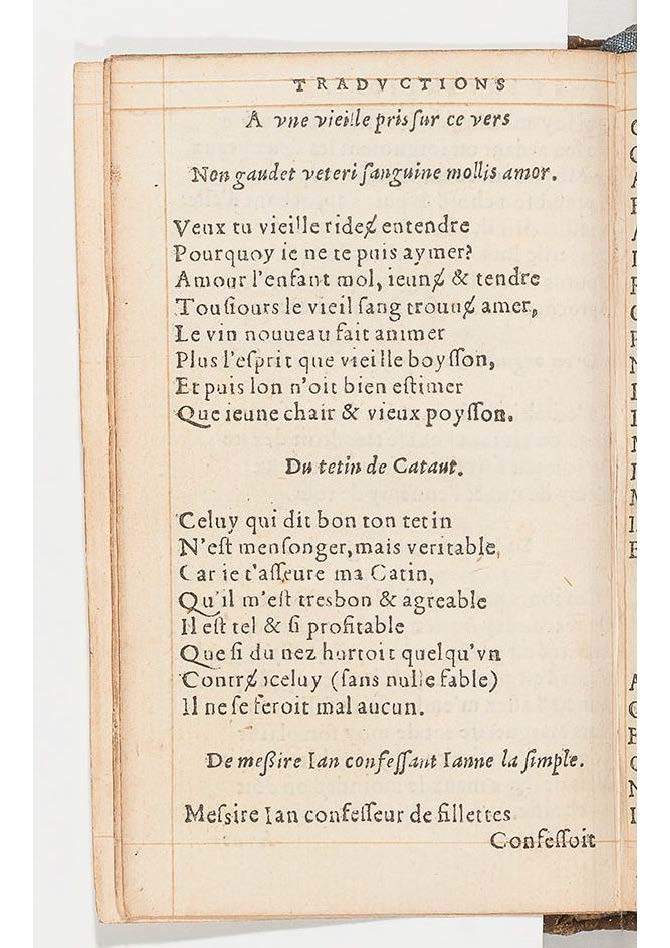 TRADVCTIONS
A vne vieille pris ſur ce vers
Non gaudet veteri ſanguine mollis amor.
Veux tu vieille rideɇ entendre
Pourquoy ie ne te puis aymer?
Amour l'enfant mol, ieunɇ & tendre
Touſiours le vieil ſang trouuɇ amer,
Le vin nouueau fait animer
Plus l'eſprit que vieille boyſſon,
Et puis lon n'oit bien eſtimer
Que ieune chair & vieux poyſſon.
Du tetin de Cataut.
Celuy qui dit bon ton tetin
N'eſt menſonger, mais veritable,
Car ie t'aſſeure ma Catin,
Qu'il m'eſt tresbon & agreable
Il eſt tel & ſi profitable
Que ſi du nez hurtoit quelqu'vn
Contrɇ iceluy (ſans nulle fable)
Il ne ſe feroit mal aucun.
De meßire Ian confeſſant Ianne la ſimple.
Meſsire Ian confeſſeur de fillettes
Confeſſoit